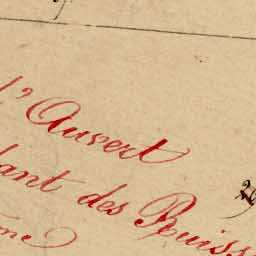 l'Auvert
dant des Buiss